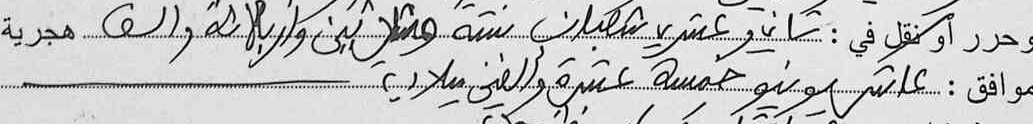 وحرر أو نقل في : ثاني وعشرين شعبان سنة وثلاثين وأربعمائة وألف هجرية
موافق : عاشر يونيو خمسة عشرة وألفين ميلادية